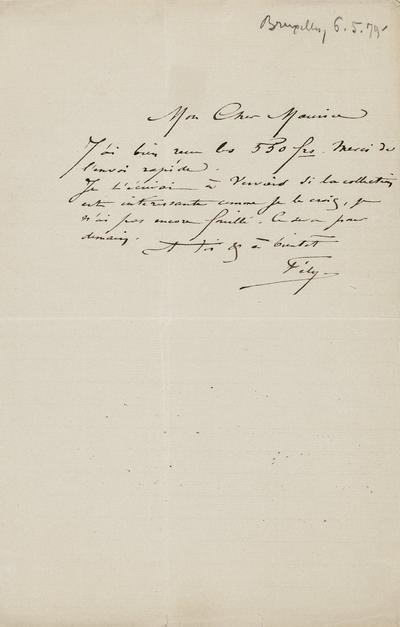 Bruxelles, 6.5.79
Mon Cher Maurice
J'ai bien reçu les 550 frs. Merci de
l'envoi rapide.
Je t'écrirai à Verviers si la collection
est intéressante comme je le crois, je
n'ai pas encore fouillé. Ce sera pour
demain.
à bientôt
Fély